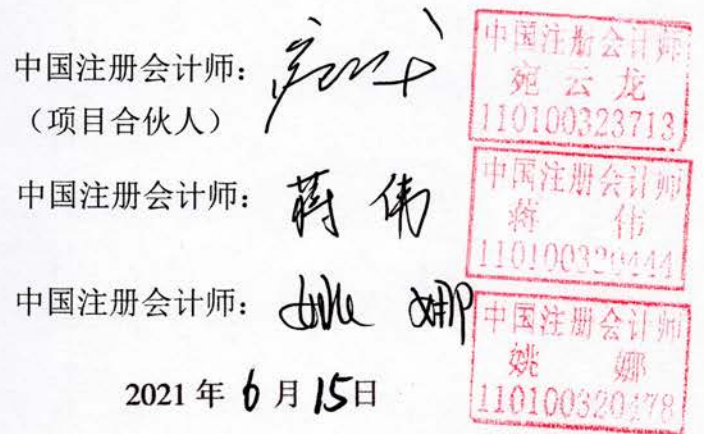 中国注册会计师：
（项目合伙人）
中国注册会计师
宛云龙
110100323713
中国注册会计师：蒋伟
中国注册会计师
蒋伟
110100320444
中国注册会计师：姚娜
中国注册会计师
姚娜
110100320478
2021年6月15日